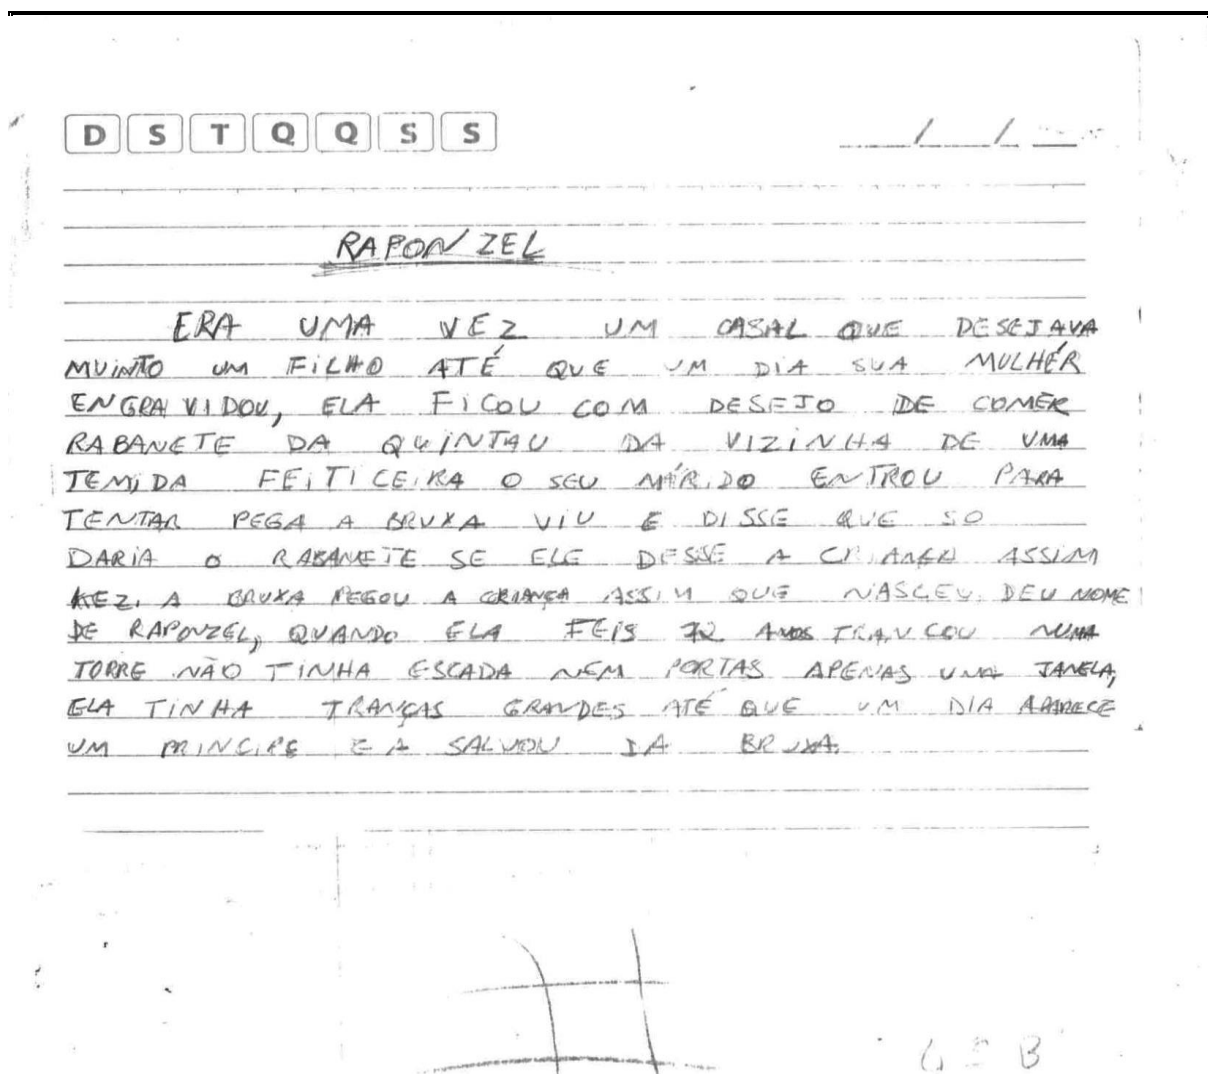 D S T Q Q S S
/ /
RAPONZEL
ERA UMA VEZ UM CASAL QUE DESEJAVA
MUINTO UM FILHO ATÉ QUE UM DIA SUA MULHÉR
ENGRAVIDOU, ELA FICOU COM DESEJO DE COMER
RABANETE DA QUINTAU DA VIZINHA DE UMA
TEMIDA FEITICEIRA O SEU MÁRIDO ENTROU PARA
TENTAR PEGA A BRUXA VIU E DISSE QUE SO
DARIA O RABANETE SE ELE DESSE A CRIANÇA ASSIM
FEZ. A BRUXA PEGOU A CRIANÇA ASSIM QUE NASCEU. DEU NOME
DE RAPONZEL, QUANDO ELA FEIS 12 ANOS TRANCOU NUMA
TORRE NÃO TINHA ESCADA NEM PORTAS APENAS UMA JANELA,
ELA TINHA TRANÇAS GRANDES ATÉ QUE UM DIA APARECE
UM PRINCIPE E A SALVOU DA BRUXA.